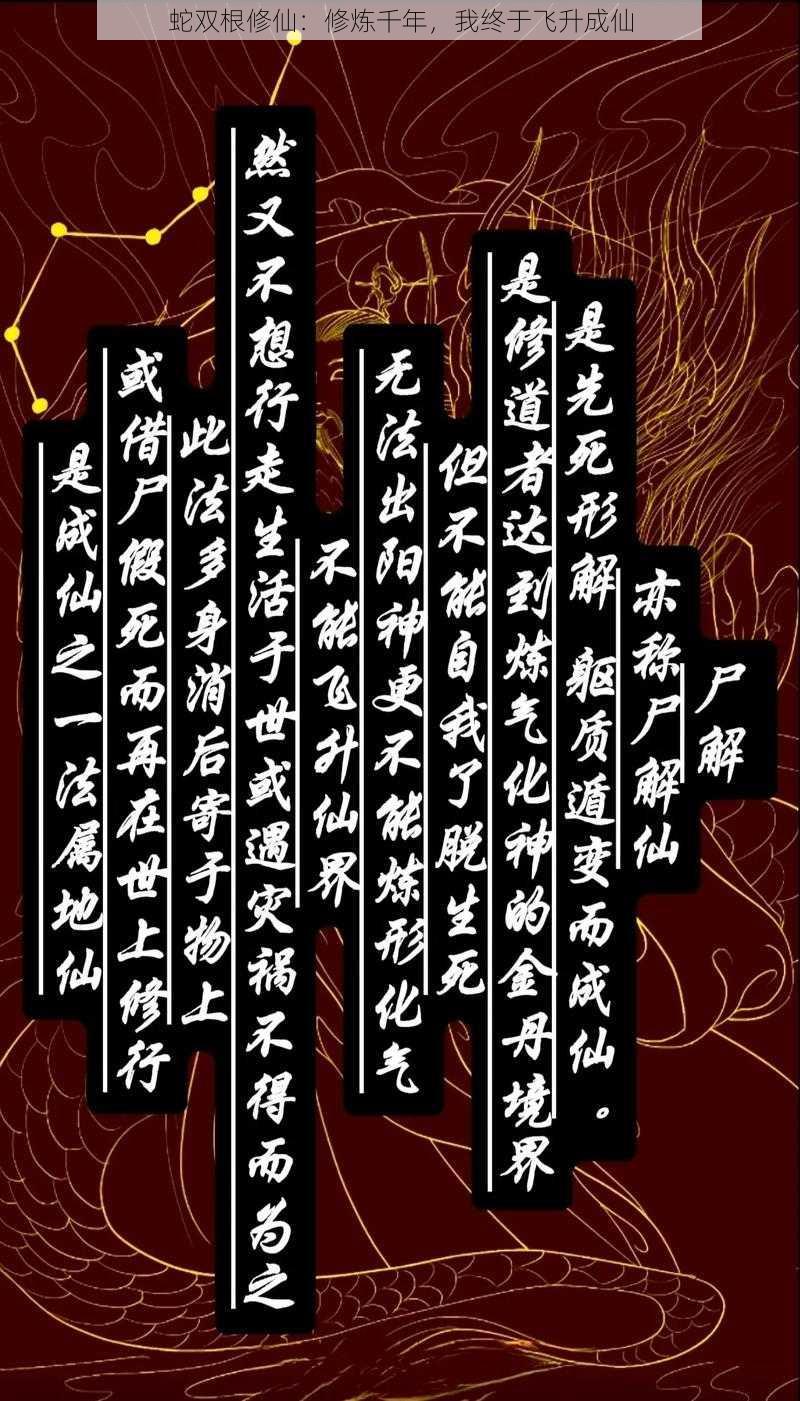 蛇双根修仙：修炼千年，我终于飞升成仙
尸解
亦称尸解仙
是先死形解 躯质遁变而成仙。
是修道者达到炼气化神的金丹境界
但不能自我了脱生死
无法出阳神更不能炼形化气
不能飞升仙界
然又不想行走生活于世或遇灾祸不得而为之
此法多身消后寄于物上
或借尸假死而再在世上修行
是成仙之一法属地仙